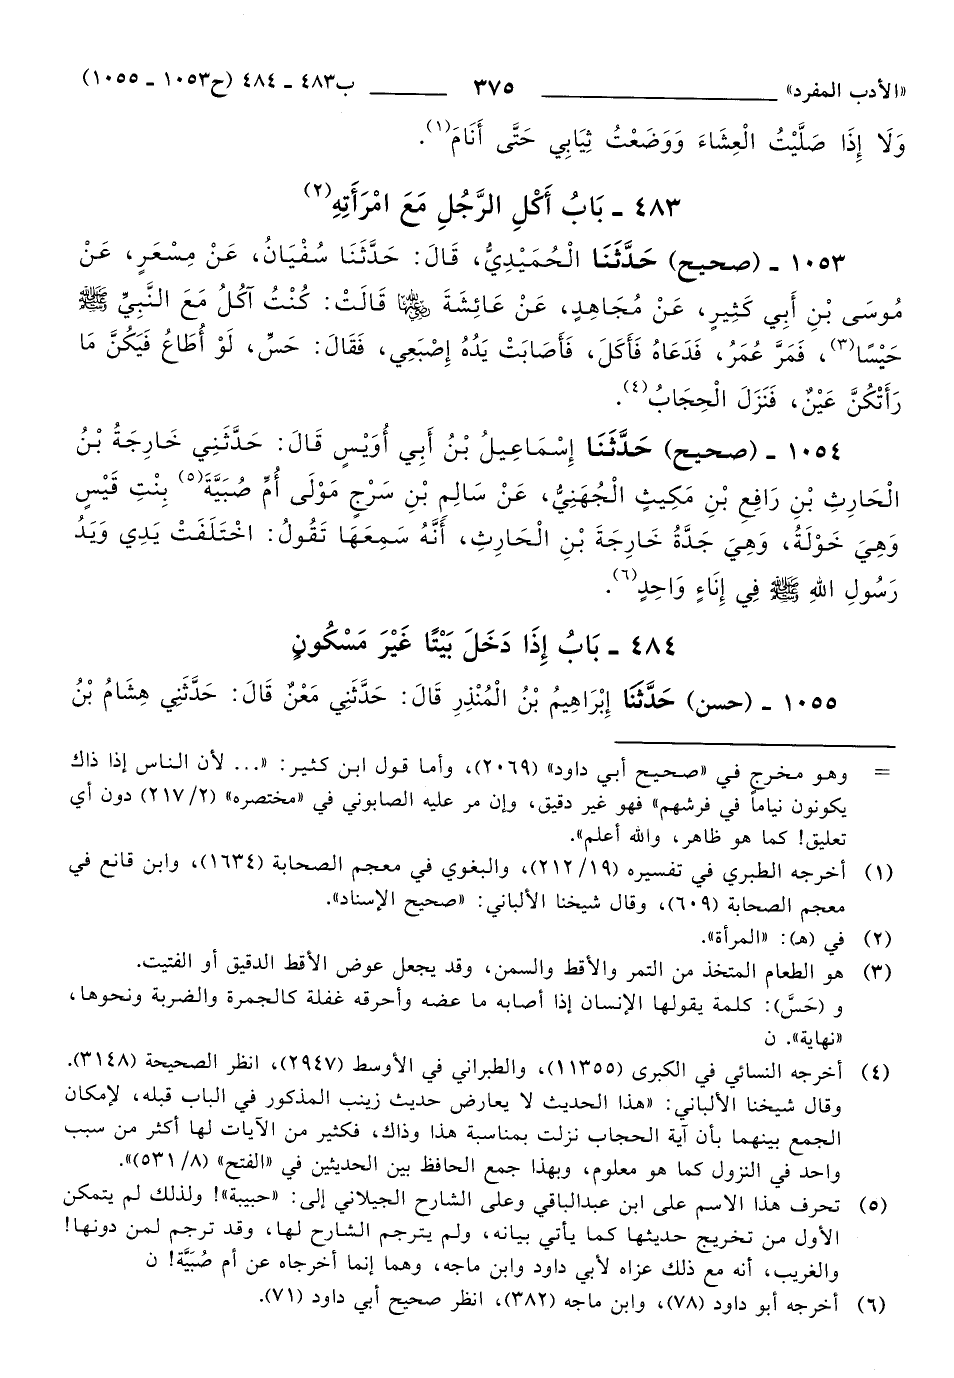 «الأدب المفرد» ٣٧٥ ب٤٨٣ ـ ٤٨٤ (ح١٠٥٣ ـ ١٠٥٥)
وَلَا إِذَا صَلَّيْتُ الْعِشَاءَ وَوَضَعْتُ ثِيَابِي حَتَّى أَنَامَ(١).
٤٨٣ ـ بَابُ أَكْلِ الرَّجُلِ مَعَ امْرَأَتِهِ(٢)
١٠٥٣ ـ (صحيح) حَدَّثَنَا الْحُمَيْدِيُّ، قَالَ: حَدَّثَنَا سُفْيَانُ، عَنْ مِسْعَرٍ، عَنْ
مُوسَى بْنِ أَبِي كَثِيرٍ، عَنْ مُجَاهِدٍ، عَنْ عَائِشَةَ رضي الله عنها قَالَتْ: كُنْتُ آكُلُ مَعَ النَّبِيِّ ﷺ
حَيْسًا(٣)، فَمَرَّ عُمَرُ، فَدَعَاهُ فَأَكَلَ، فَأَصَابَتْ يَدُهُ إِصْبَعِي، فَقَالَ: حَسِّ، لَوْ أُطَاعُ فَيَكُنَّ مَا
رَأَتْكُنَّ عَيْنٌ، فَنَزَلَ الْحِجَابُ(٤).
١٠٥٤ ـ (صحيح) حَدَّثَنَا إِسْمَاعِيلُ بْنُ أَبِي أُوَيْسٍ قَالَ: حَدَّثَنِي خَارِجَةُ بْنُ
الْحَارِثِ بْنِ رَافِعِ بْنِ مَكِيثٍ الْجُهَنِيُّ، عَنْ سَالِمِ بْنِ سَرْجٍ مَوْلَى أُمِّ صُبَيَّةَ(٥) بِنْتِ قَيْسٍ
وَهِيَ خَوْلَةُ، وَهِيَ جَدَّةُ خَارِجَةَ بْنِ الْحَارِثِ، أَنَّهُ سَمِعَهَا تَقُولُ: اخْتَلَفَتْ يَدِي وَيَدُ
رَسُولِ اللهِ ﷺ فِي إِنَاءٍ وَاحِدٍ(٦).
٤٨٤ ـ بَابُ إِذَا دَخَلَ بَيْتًا غَيْرَ مَسْكُونٍ
١٠٥٥ ـ (حسن) حَدَّثَنَا إِبْرَاهِيمُ بْنُ الْمُنْذِرِ قَالَ: حَدَّثَنِي مَعْنٌ قَالَ: حَدَّثَنِي هِشَامُ بْنُ
= وهو مخرج في «صحيح أبي داود» (٢٠٦٩)، وأما قول ابن كثير: «... لأن الناس إذا ذاك
يكونون نياماً في فرشهم» فهو غير دقيق، وإن مر عليه الصابوني في «مختصره» (٢/ ٢١٧) دون أي
تعليق! كما هو ظاهر، والله أعلم».
(١) أخرجه الطبري في تفسيره (١٩/ ٢١٢)، والبغوي في معجم الصحابة (١٦٣٤)، وابن قانع في
معجم الصحابة (٦٠٩)، وقال شيخنا الألباني: «صحيح الإسناد».
(٢) في (هـ): «المرأة».
(٣) هو الطعام المتخذ من التمر والأقط والسمن، وقد يجعل عوض الأقط الدقيق أو الفتيت.
و (حَسَّ): كلمة يقولها الإنسان إذا أصابه ما عضه وأحرقه غفلة كالجمرة والضربة ونحوها،
«نهاية». ن
(٤) أخرجه النسائي في الكبرى (١١٣٥٥)، والطبراني في الأوسط (٢٩٤٧)، انظر الصحيحة (٣١٤٨).
وقال شيخنا الألباني: «هذا الحديث لا يعارض حديث زينب المذكور في الباب قبله، لإمكان
الجمع بينهما بأن آية الحجاب نزلت بمناسبة هذا وذاك، فكثير من الآيات لها أكثر من سبب
واحد في النزول كما هو معلوم، وبهذا جمع الحافظ بين الحديثين في «الفتح» (٨/ ٥٣١)».
(٥) تحرف هذا الاسم على ابن عبدالباقي وعلى الشارح الجيلاني إلى: «حبيبة»! ولذلك لم يتمكن
الأول من تخريج حديثها كما يأتي بيانه، ولم يترجم الشارح لها، وقد ترجم لمن دونها!
والغريب، أنه مع ذلك عزاه لأبي داود وابن ماجه، وهما إنما أخرجاه عن أم صُبَيَّة! ن
(٦) أخرجه أبو داود (٧٨)، وابن ماجه (٣٨٢)، انظر صحيح أبي داود (٧١).